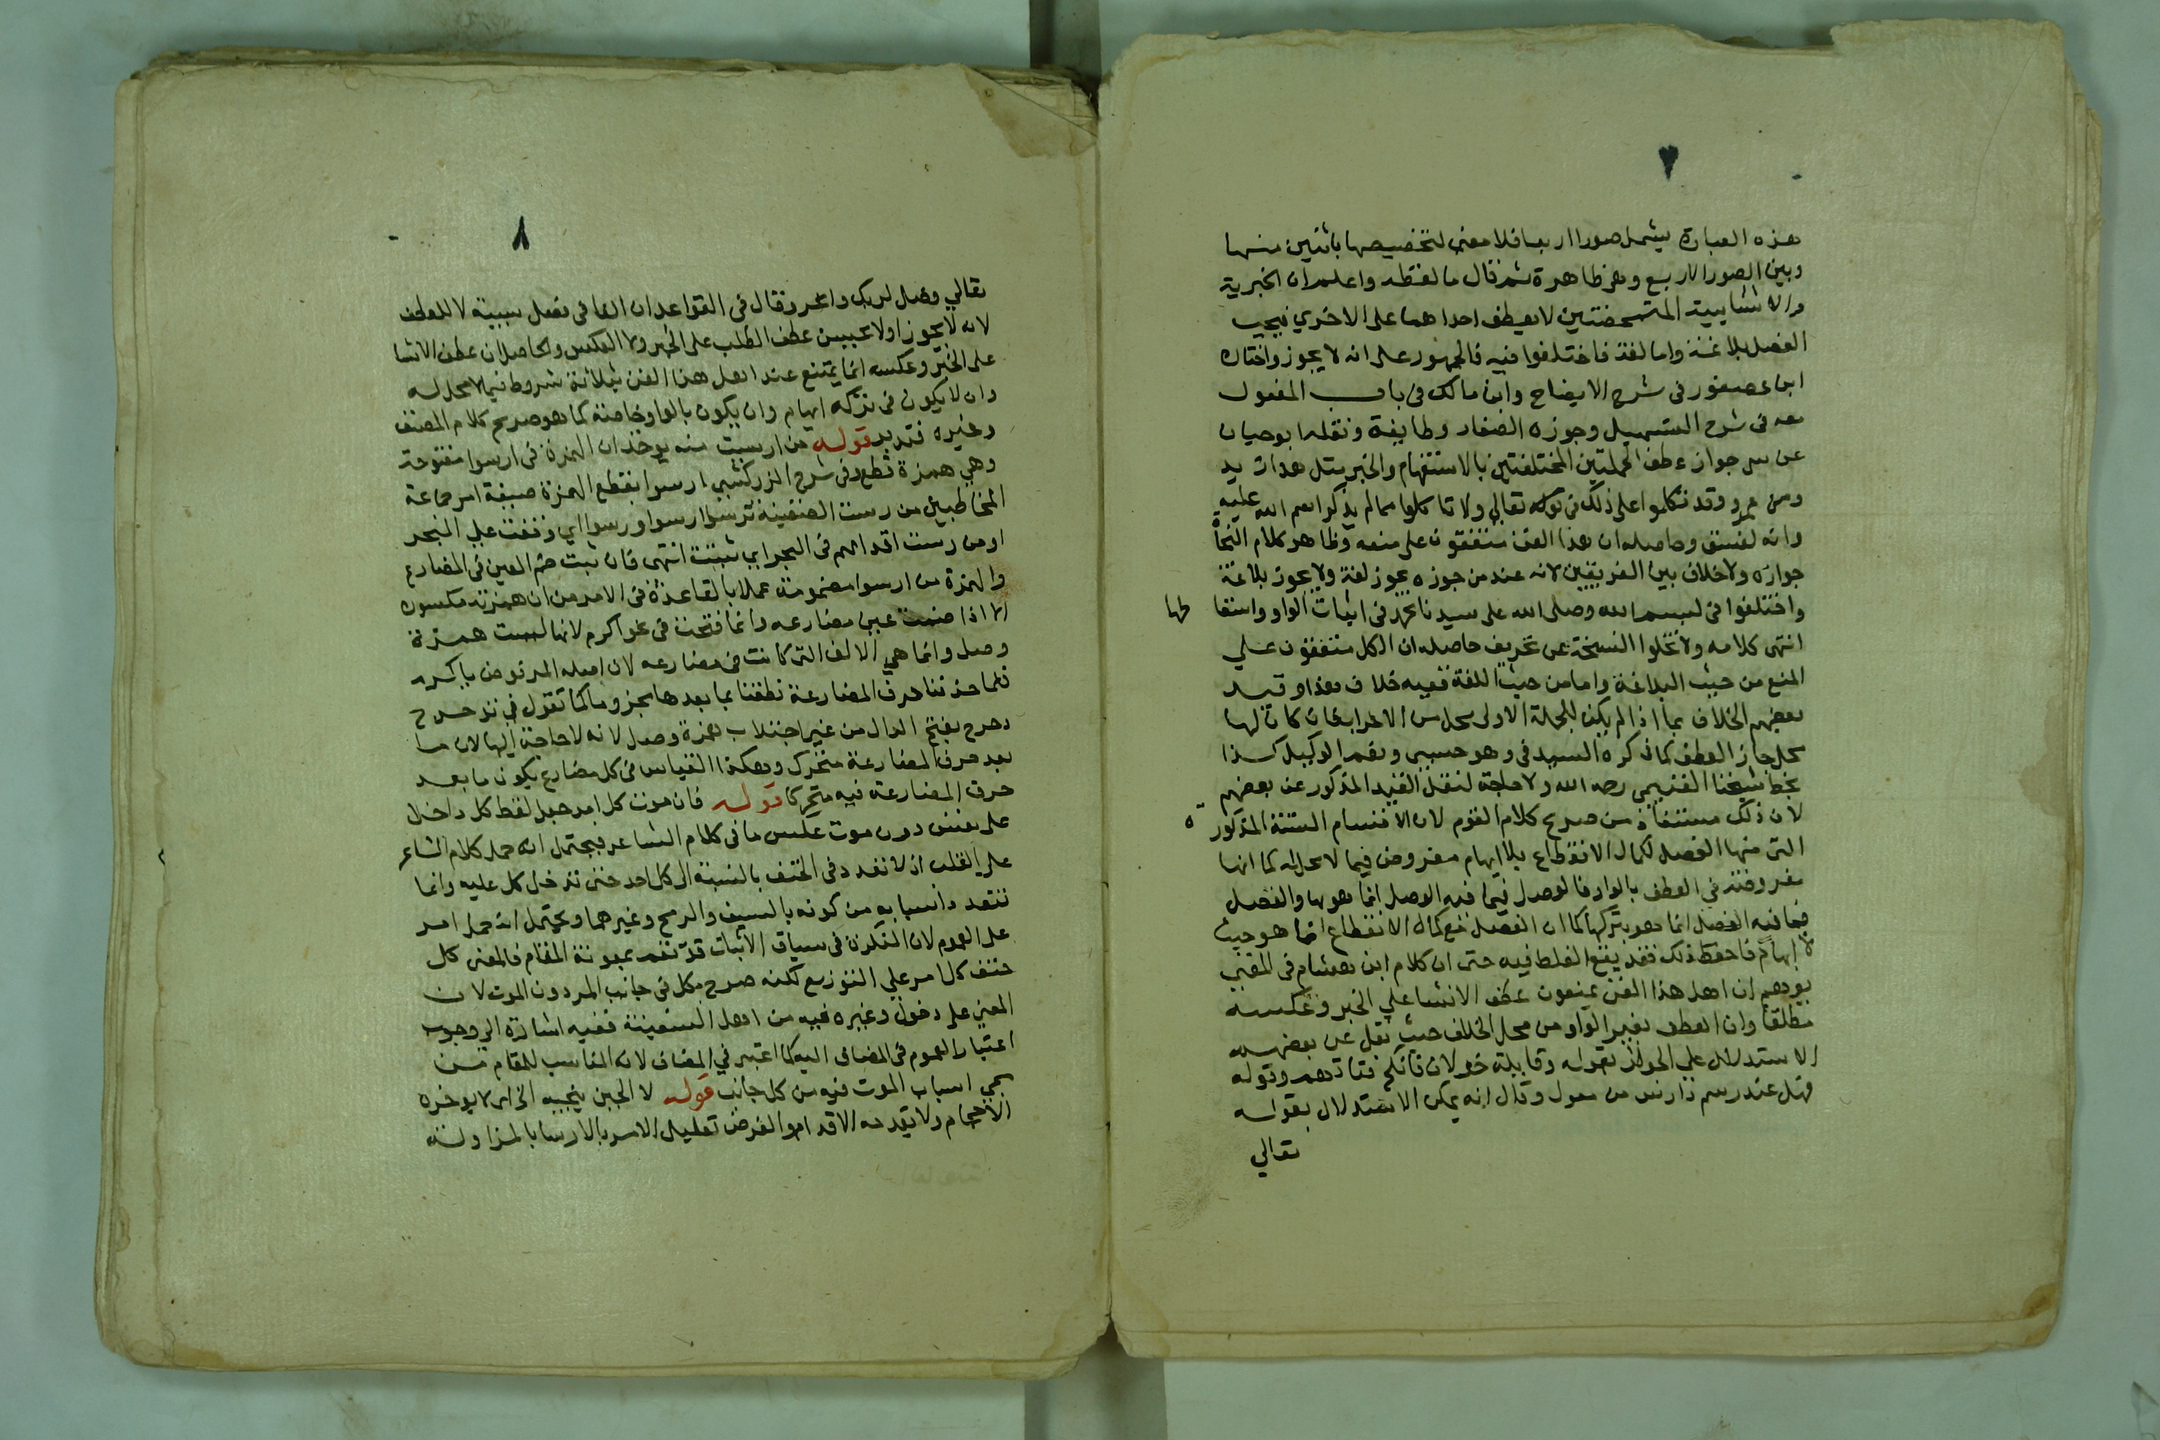 ٧
هذه العبارة يشمل صورا اربعا فلا معنى لتخصيصها باثنين منها
وبين الصور الاربع وهو ظاهرة ثم قال ما لفظه واعلم ان الخبرية
والانشايية المتمحضتين لا يعطف احداهما على الاخري فيجب
الفصل بلاغة واما لغة فاختلفوا فيه فالجمهور على انه لا يجوز واختاره
ابن عصفور في شرح الايضاح وابن مالك في باب المفعول
معه في شرح التسهيل وجوزه الصفار وطايفة ونقله ابو حيان
عن س جواز عطف الجملتين المختلفتين بالاستفهام والخبر مثل هذا زيد
ومن عمرو وقد تكلموا على ذلك في قوله تعالي ولا تاكلوا مما لم يذكر اسم الله عليه
وانه لفسق وحاصله ان هذا الفن متفقون على منعه وظاهر كلام النحاة
جوازه ولا خلاف بين الفريقين لانه عند من جوزه يجوز لغة ولا يجوز بلاغة
واختلفوا في لبسم الله وصلى الله على سيدنا محمد في اثبات الواو واسقا طها
انتهى كلامه ولا تخلوا النسخة عن تحريف حاصله ان الكل متفقون علي
المنع من حيث البلاغة واما من حيث اللغة ففيه خلاف هذا وقيد
بعضهم الخلاف بما اذا لم يكن للجملة الاولى محل من الاعراب فان كان لها
محل جاز العطف كما ذكره السيد في وهو حسبي ونعم الوكيل كذا
بخط شيخنا الغنيمي رحمه الله ولا حاجة لنقل القيد المذكور عن بعضهم
لان ذلك مستفاد من صريح كلام القوم لان الاقسام الستة المذكور ة
التي منها الفصل لكمال الانقطاع بلا ايهام مفروض فيما لا محل له كما انها
مفروضة في العطف بالواو فالوصل فيما فيه الوصل انما هو بها والفصل
فيما فيه الفصل انما هو بتركها كما ان الفصل مع كمال الانقطاع انما هو حيث
لا ايهام فاحفظ ذلك فقد يقع الغلط فيه حتى ان كلام ابن هشام في المغني
يوهم ان اهل هذا الفن يمنعون عطف الانشا علي الخبر وعكسه
مطلقا وان العطف بغير الواو من محل الخلاف حيث نقل عن بعضهم
الاستدلال علي الجواز بقوله وقايلة خولان فانكح فتاتهم وقوله
وهل عند رسم دارس من معول وقال انه يمكن الاستدلال بقوله
تعالي
٨
تعالي وصل لربك وانحر وقال في القواعد ان الفا في فصل سببية لا للعطف
لانه لا يجوز اولا يحسن عطف الطلب على الخبر ولا العكس والحاصل ان عطف الانشا
على الخبر وعكسه انما يمتنع عند اهل هذا الفن بثلاثة شروط فيما لا محل له
وان لا يكون في تركه ايهام وان يكون بالواو خاصة كما هو صريح كلام المصنف
وغيره فتدبر قوله من ارسيت منه يوخذ ان الهمزة في ارسوا مفتوحة
وهي همزة قطع وفي شرح الزركشي ارسوا بقطع الهمزة صيغة امر جماعة
المخاطبين من رست السفينة ترسوا رسوا ورسوا اي وقفت علي البحر
او من رست اقدامهم في البحر اي ثبتت انتهى فان ثبت ضم العين في المضارع
والهمزة من ارسوا مضمومة عملا بالقاعدة في الامر من ان همزته مكسورة
الا اذا ضمت عين مضارعه وانما فتحت في نحو اكرم لانها ليست همزة
وصل وانما هي الالف التي كانت في مضارعه لان اصله المرفوض يااكرم
فلما حذفنا حرف المضارعة نطقنا بما بعدها مجزوما كما تقول في تدحرج
دحرج بفتح الدال من غير اجتلاب همزة وصل لانه لا حاجة اليها لان ما
بعد حرف المضارعة متحرك وهكذا القياس في كل مضارع يكون ما بعد
حرف المضارعة فيه متحركا قوله فان موت كل امر جعل لفظ كل داخلا
على نفس دون موت عكس ما في كلام الشاعر فيحتمل انه حمل كلام الشاعر
علي القلب اذ لا تعدد في الحتف بالنسبة الى كل احد حتى تدخل كل عليه وانما
تتعدد اسبابه من كونه بالسيف والرمح وغيرهما ويحتمل انه حمل امر
على العموم لان النكرة في سياق الاثبات قد تعم بمعونة المقام فالمعنى كل
حتف كل امر علي التوزيع لكنه صرح بكل في جانب المر دون الموت لان
المعني على دخول وغيره فيه من اهل السفينة ففيه اشارة الي وجوب
اعتبار العموم في المضاف اليه كما اعتبر في المضاف لانه المناسب للمقام من
مجي اسباب الموت فيه من كل جانب قوله لا الجبن ينجيه الخ اي لا يوخره
الاحجام ولا يقدمه الاقدام والغرض تعليل الامر بالارسا بالمزاولة